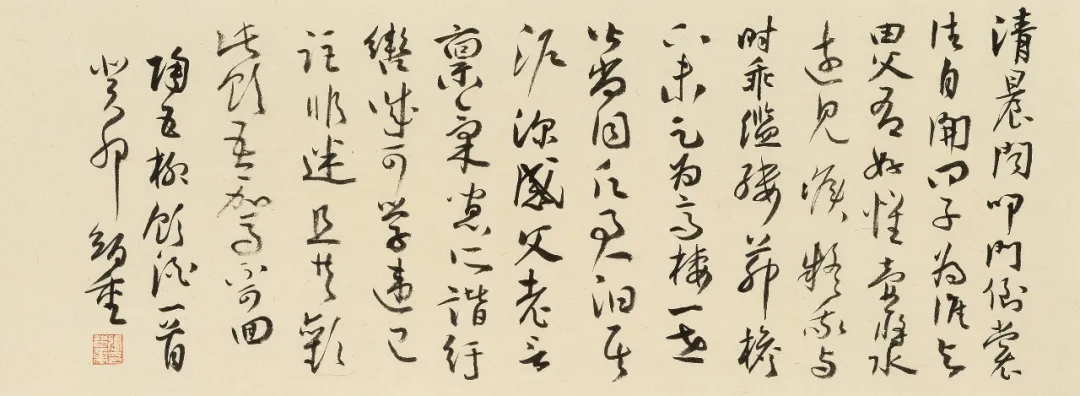 清晨聞叩門倒裳
往自開問子為誰與
田父有好懷壺漿
遠見候疑我與
時乖繿縷茅檐
下未足為高棲一世
皆尚同願君汩其
泥深感父老言
稟氣寡所諧紆
轡誠可學違己
詎非迷且共歡
此飲吾駕不可回
陶五柳飲酒一首
癸卯